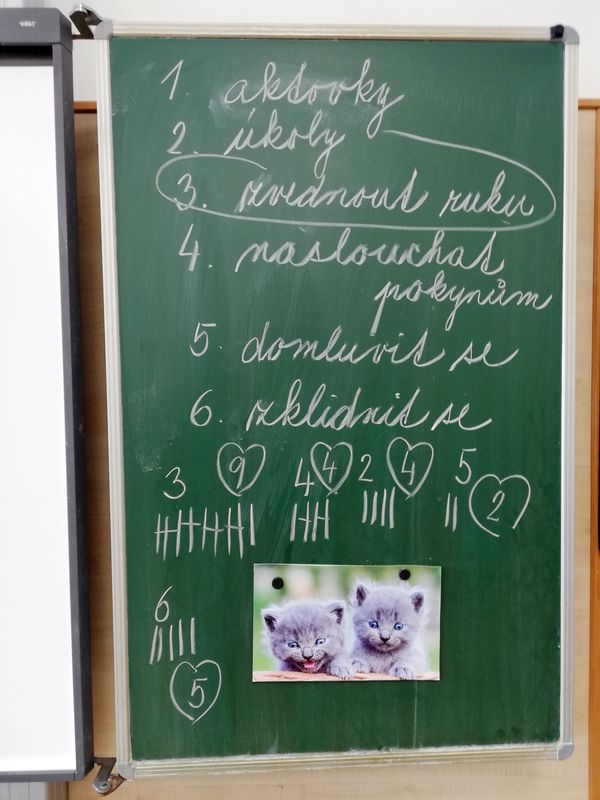 1. aktovky
2. úkoly
3. zvednout ruku
4. naslouchat
pokynům
5. domluvit se
6. zklidnit se
3 9 4 4 2 4 5 2
6
5